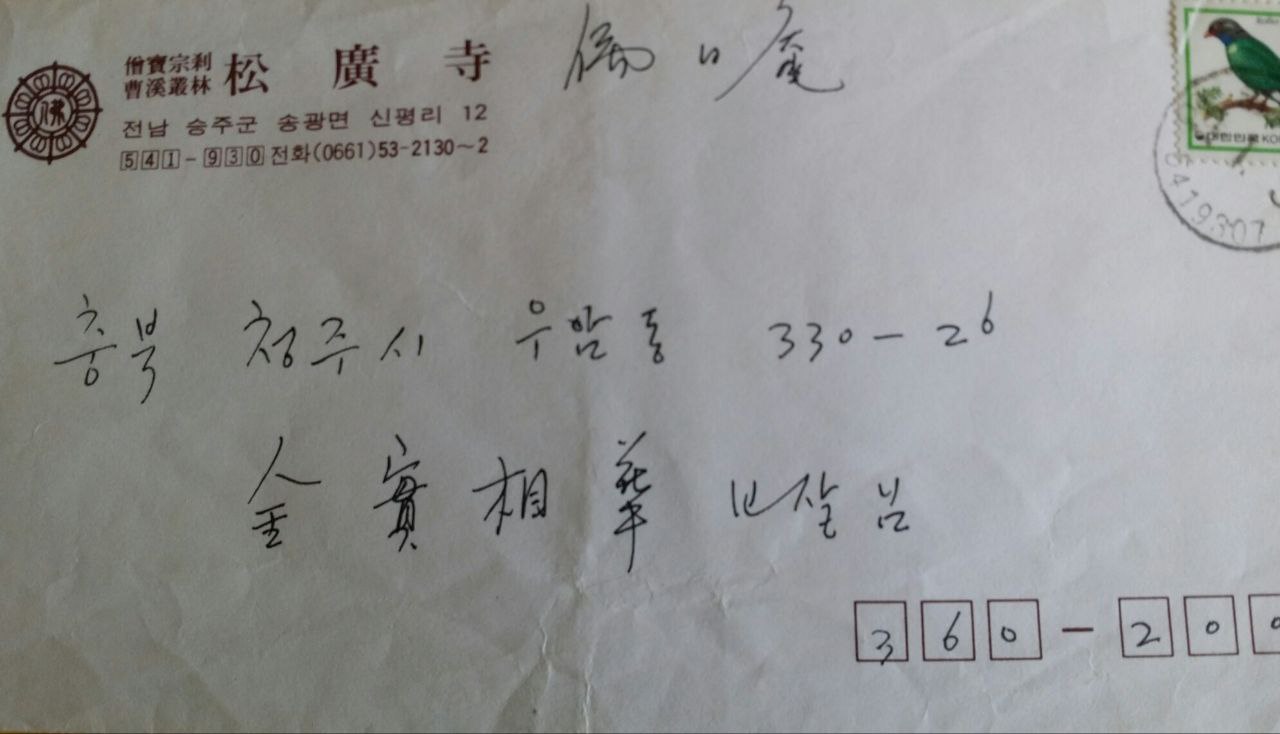 僧寶宗刹
曹溪叢林
松廣寺
佛日庵
전남 승주군 송광면 신평리 12
541-930 전화(0661)53-2130~2
佛
대한민국 KO
충북 청주시 우암동 330-26
金實相華 보살님
360-200